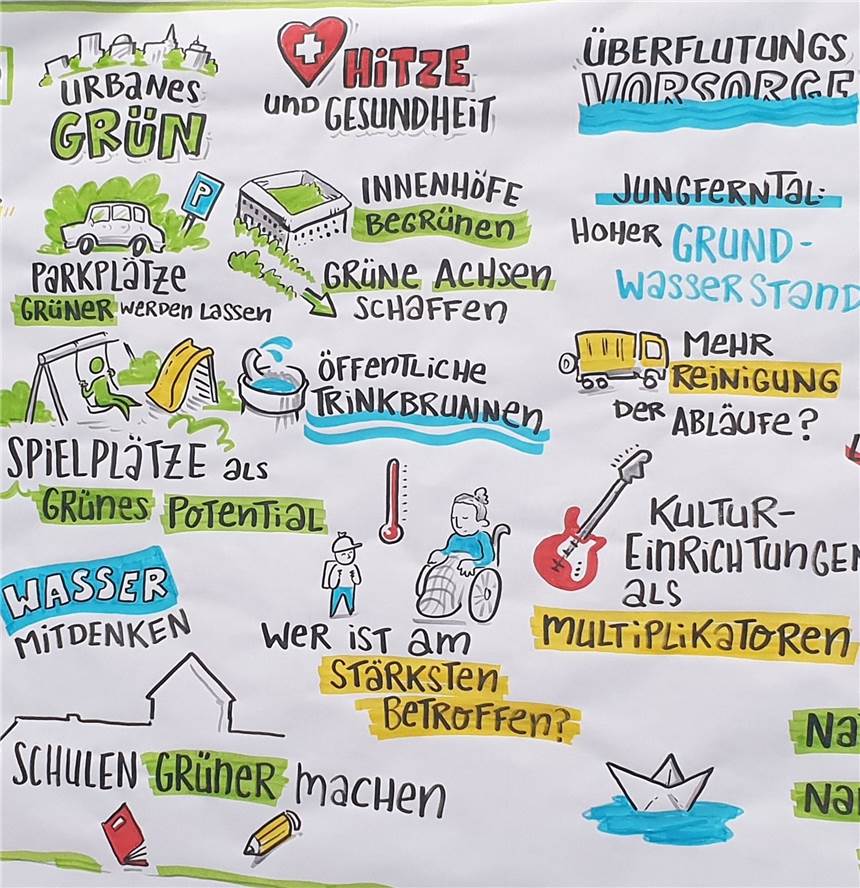 URBANES
GRÜN
P
PARKPLÄTZE
GRÜNER WERDEN LASSEN
SPIELPLÄTZE ALS
GRÜNES POTENTIAL
WASSER
MITDENKEN
SCHULEN GRÜNER MACHEN
HITZE
UND GESUNDHEIT
INNENHÖFE
BEGRÜNEN
GRÜNE ACHSEN
SCHAFFEN
ÖFFENTLICHE
TRINKBRUNNEN
WER IST AM
STÄRKSTEN
BETROFFEN?
ÜBERFLUTUNGS
VORSORGE
JUNGFERNTAL:
HOHER GRUND-
WASSERSTAND
MEHR
REINIGUNG
DER ABLÄUFE?
KULTUR-
EINRICHTUNGEN
ALS
MULTIPLIKATOREN
Na
Na